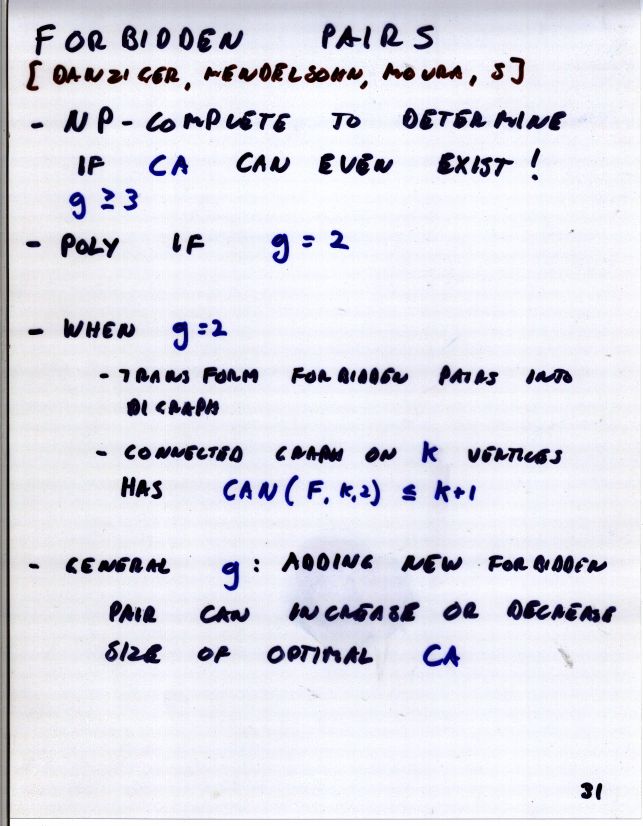 FORBIDDEN PAIRS
[DANZIGER, MENDELSOHN, MOURA, S]
- NP-COMPLETE TO DETERMINE
IF CA CAN EVEN EXIST!
g ≥ 3
- POLY IF g = 2
- WHEN g = 2
- TRANSFORM FORBIDDEN PAIRS INTO
DIGRAPH
- CONNECTED GRAPH ON K VERTICES
HAS CAN(F, K, 2) ≤ K+1
- GENERAL g: ADDING NEW FORBIDDEN
PAIR CAN INCREASE OR DECREASE
SIZE OF OPTIMAL CA
31